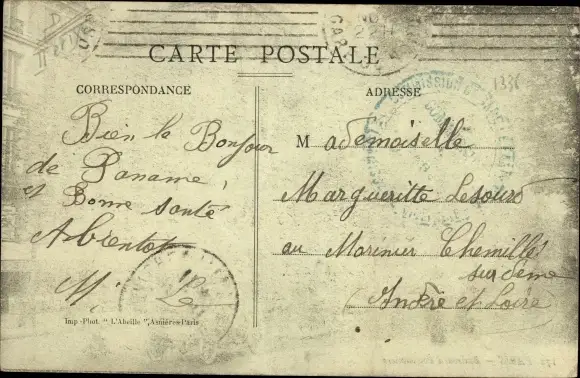 CARTE POSTALE
CORRESPONDANCE
ADRESSE
Bien le Bonjour
de Paname,
et Bonne santé
A bientot
M
Mademoiselle
Margueritte Lesourd
au Marinier Chemillé
sur deme
Andre et Loire
Imp.-Phot. "L'Abeille", Asnières-Paris
1336